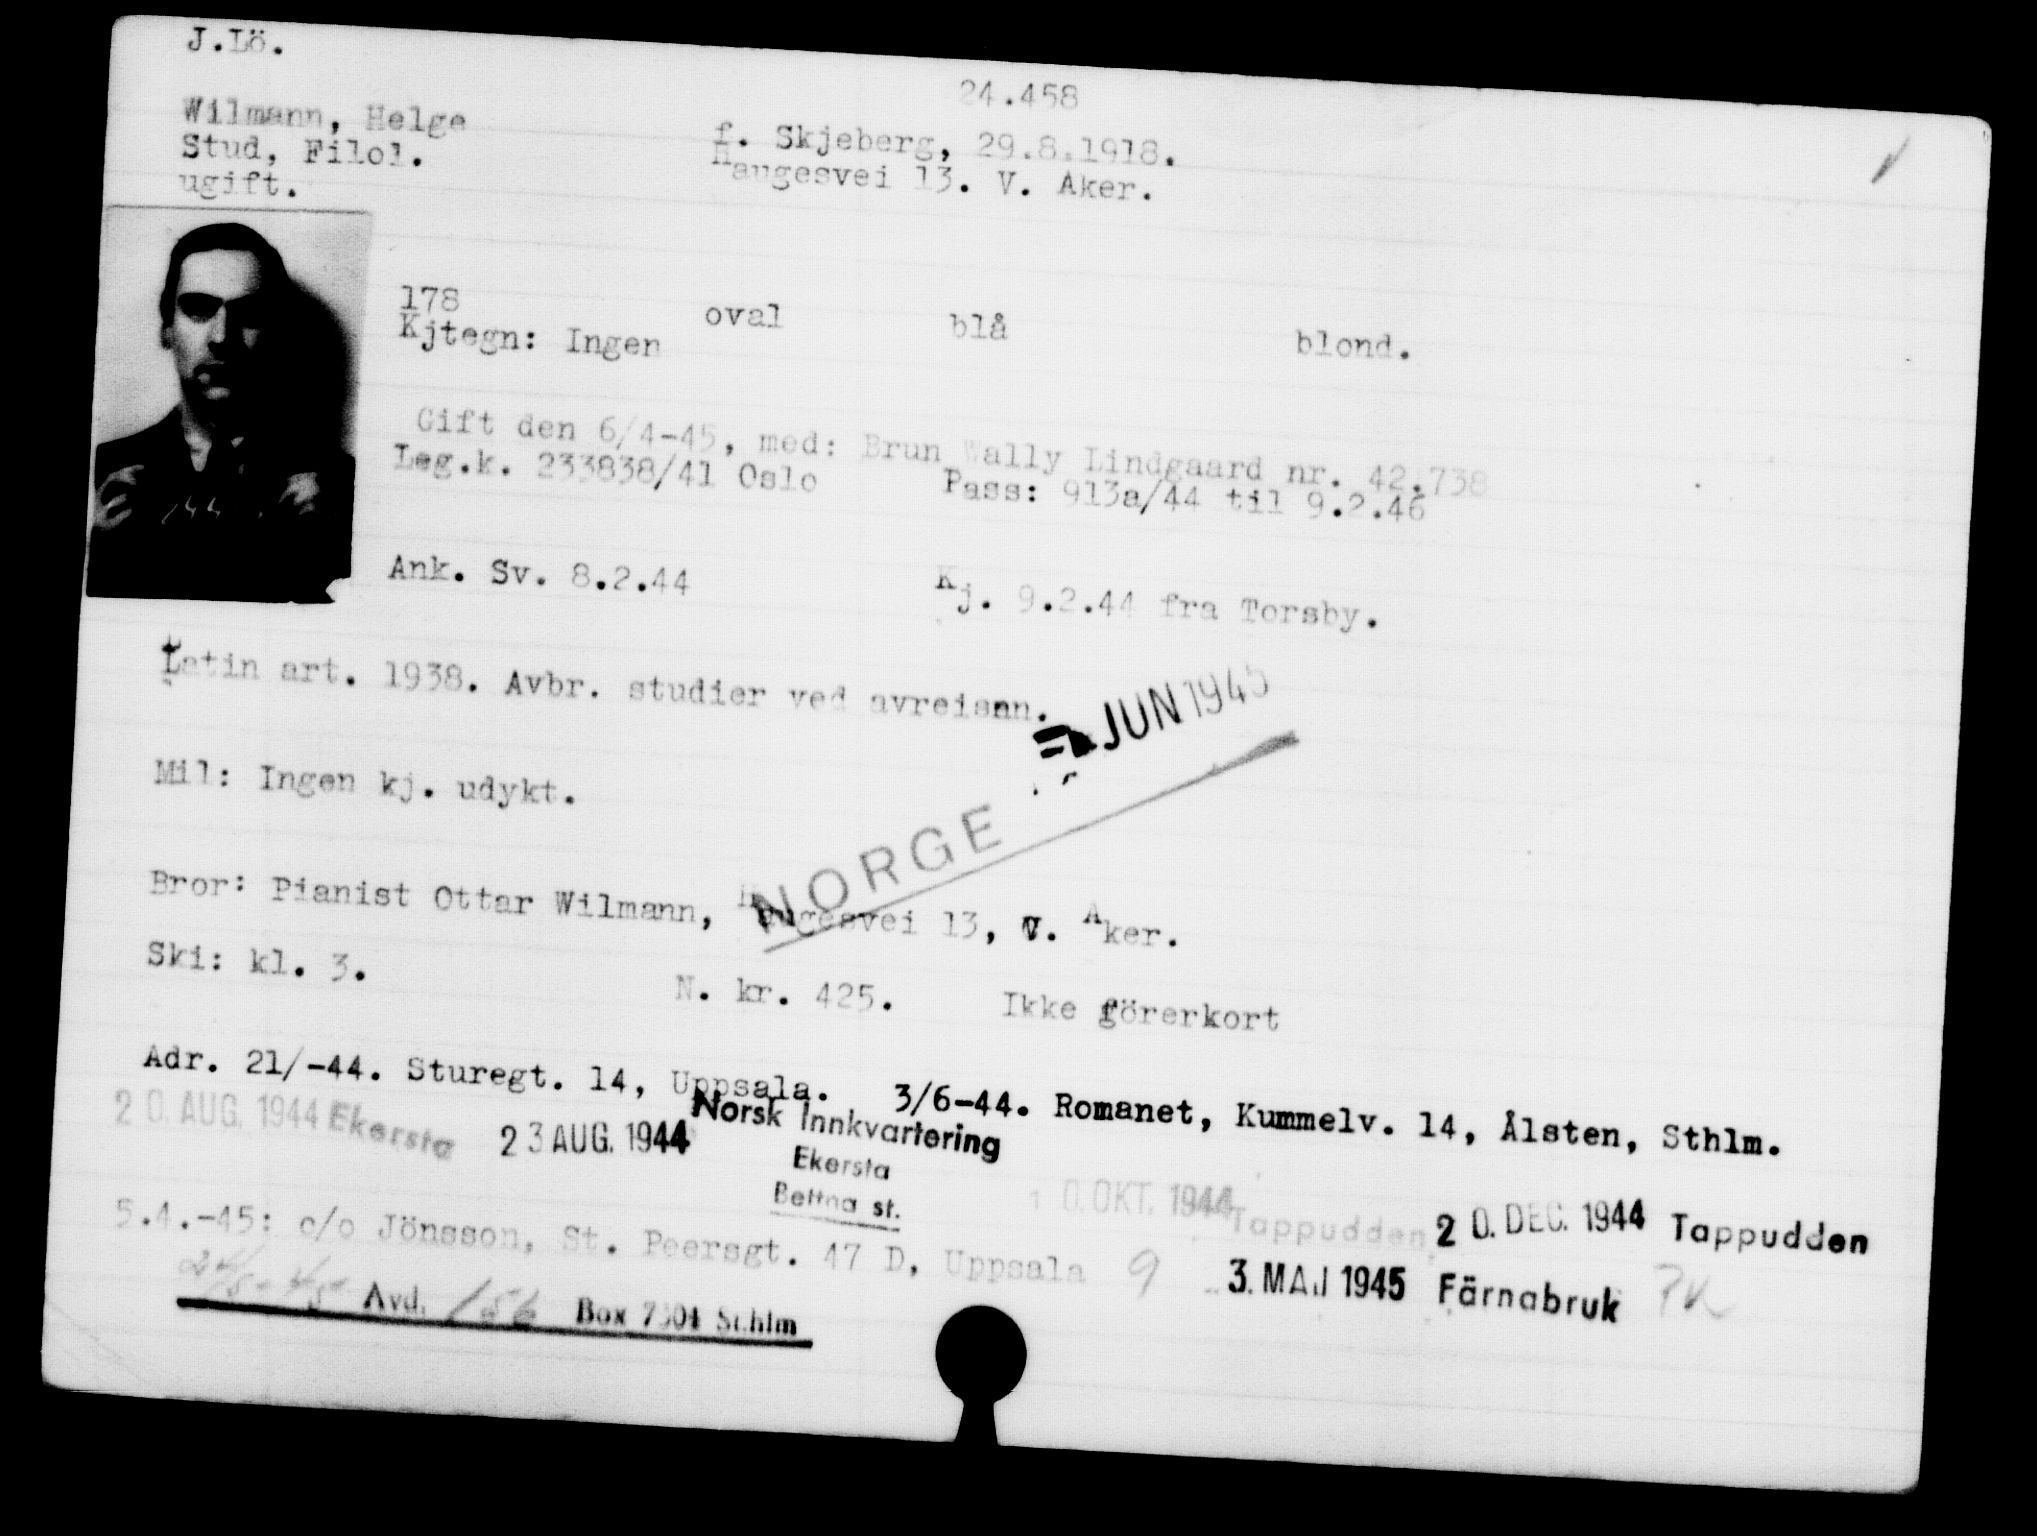 J.Lö.
24.458
Wilmann, Helge
f. Skjeberg, 29.8.1918.
Stud, Filol.
Haugesvei 13. V. Aker.
ugift.
178 oval blå blond.
Kjtegn: Ingen
Gift den 6/4-45, med: Brun Wally Lindgaard nr. 42.738
Leg.k. 233838/41 Oslo Pass: 913a/44 til 9.2.46
Ank. Sv. 8.2.44 Kj. 9.2.44 fra Torsby.
Latin art. 1938. Avbr. studier ved avreisen.
JUN 1945
Mil: Ingen kj. udykt.
NORGE
Bror: Pianist Ottar Wilmann, Haugesvei 13, V. Aker.
Ski: kl. 3. N. kr. 425. Ikke förerkort
Adr. 21/-44. Sturegt. 14, Uppsala. 3/6-44. Romanet, Kummelv. 14, Ålsten, Sthlm.
20. AUG. 1944 Ekersta 23 AUG. 1944 Norsk Innkvartering
Ekersta
Bettna st.
10. OKT. 1944 Tappudden 20. DEC. 1944 Tappudden
5.4.-45: c/o Jönsson, St. Peersgt. 47 D, Uppsala 9 3. MAJ 1945 Färnabruk
24/5-45 Avd. 156 Box 7304 Sthlm